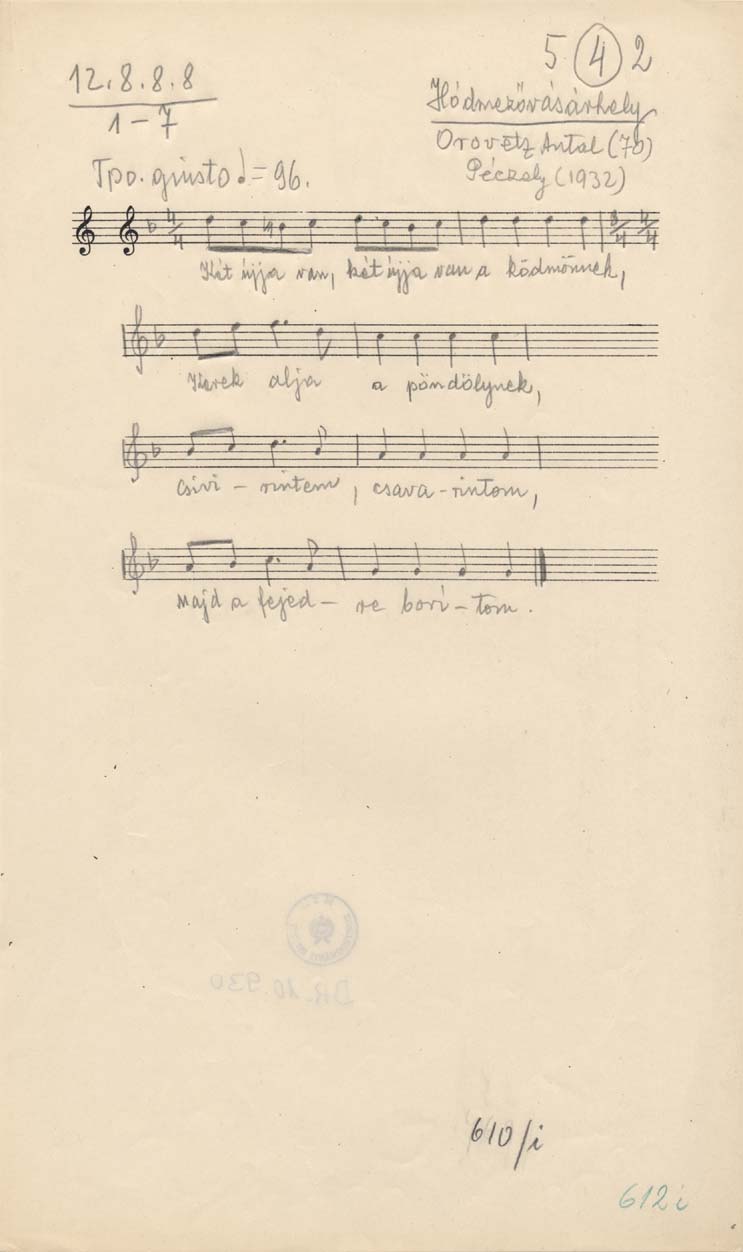 12.8.8.8
1-7
5 4 2
Hódmezővásárhely
Orovetz Antal (70)
Péczely (1932)
Tpo. giusto ♩=96.
4/4 8/4 4/4
Két újja van, két újja van a ködmönnek,
Kerek alja a pöndölynek,
Csivi - rintem, csava-rintom,
Majd a fejed- re borí-tom.
DR. 10.930
610/i
612i